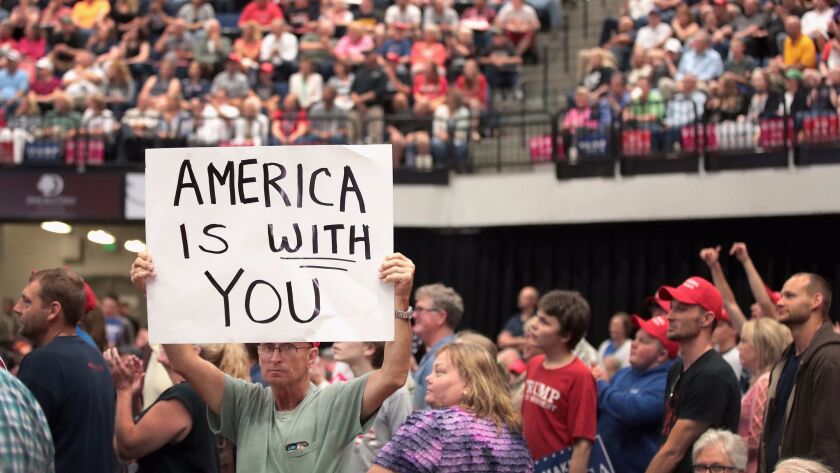 AMERICA
IS WITH
YOU
TRUMP
MAKE